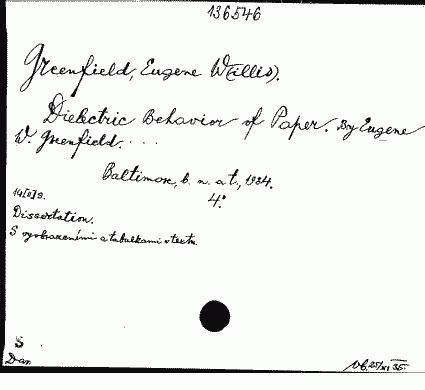 136546
Greenfield, Eugene W(illis).
Dielectric Behavior of Paper. By Eugene
W. Greenfield. . . .
Baltimore, b. n. a t., 1934.
4°
14[II]s.
Dissertation.
S vyobrazeními a tabulkami v textu.
S
Dar.
25/XI 35.